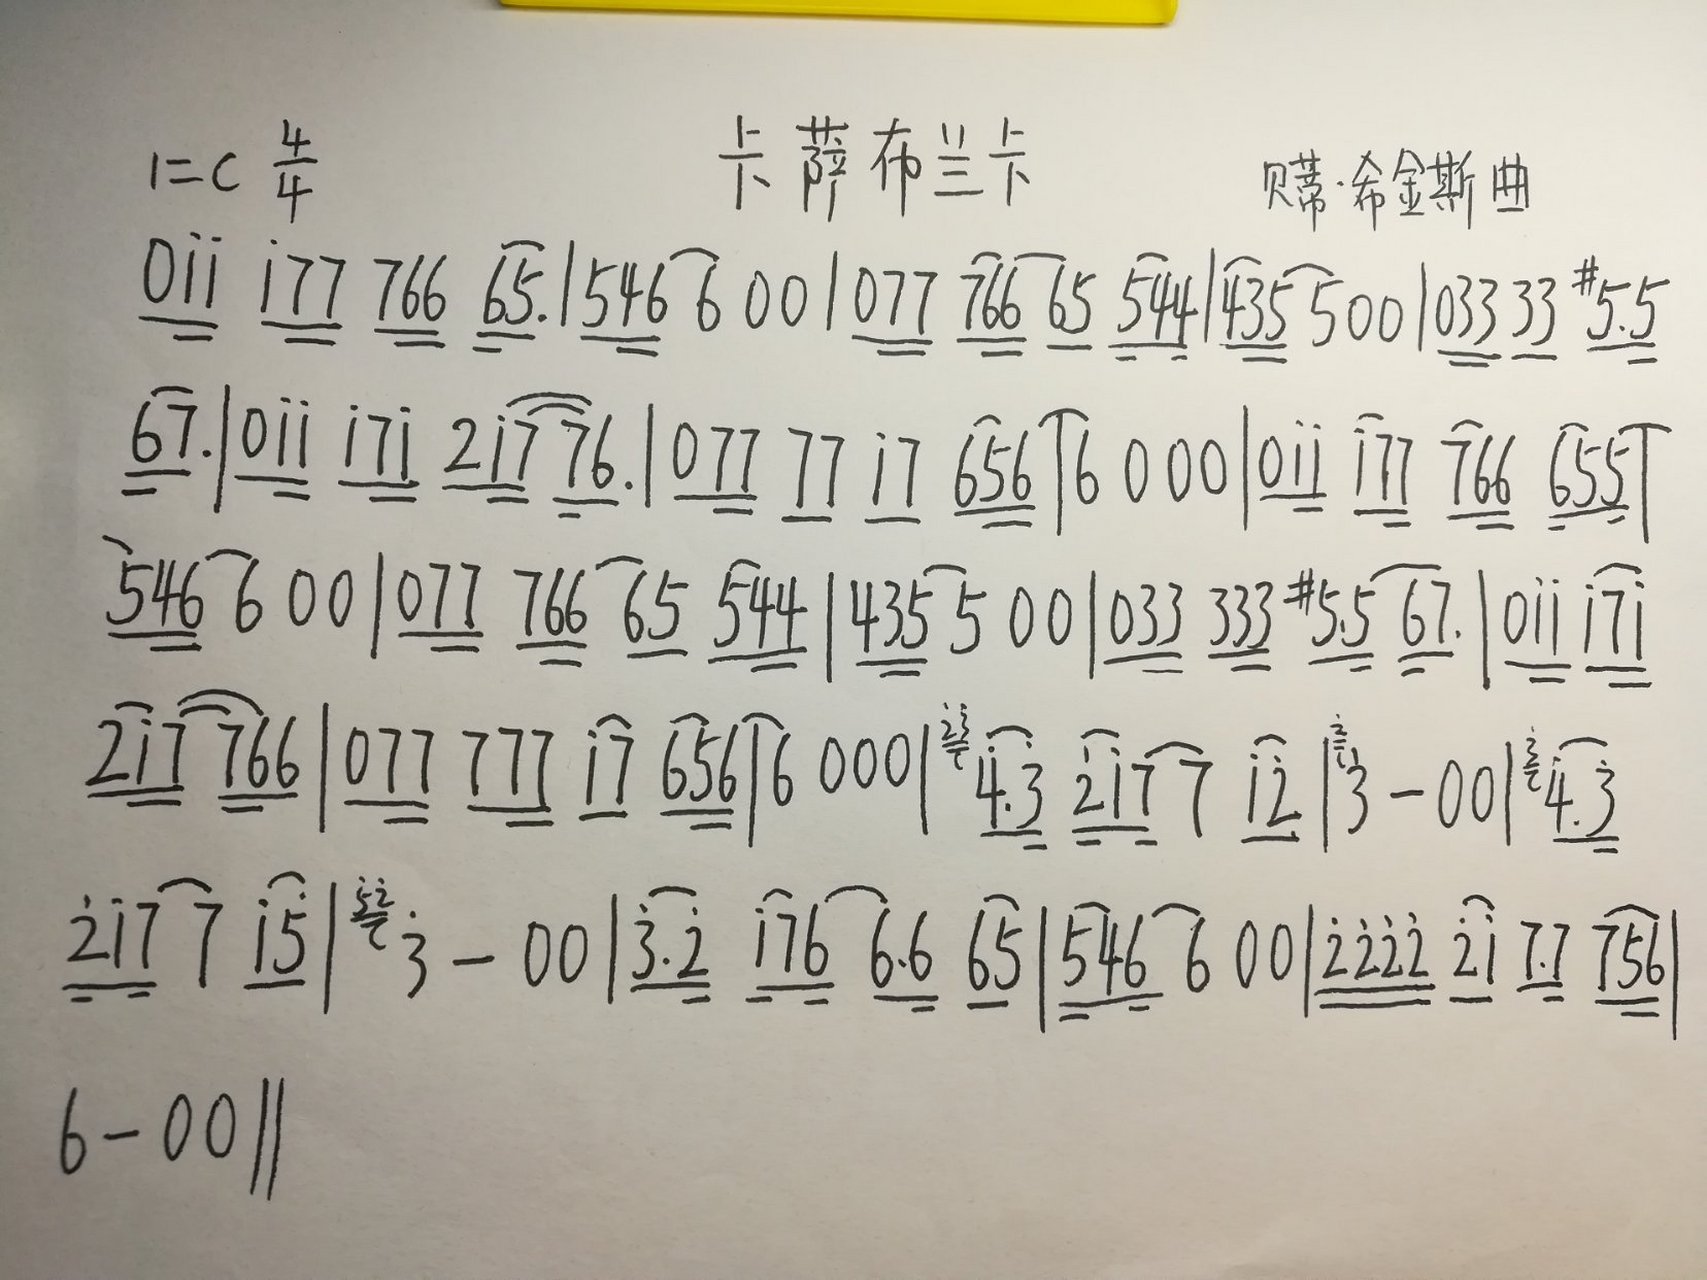 1=C 4/4 卡萨布兰卡 贝蒂·希金斯曲
0i̇i̇ i̇77 766 65.|546 6 00|077 766 65 544|435 500|033 33 #5.5
67.|0i̇i̇ i̇7i̇ 2i̇7 76.|077 77 i̇7 656|6 000|0i̇i̇ i̇77 766 655|
546 6 00|077 766 65 544|435 5 00|033 333 #5.5 67.|0i̇i̇ i̇7i̇
2i̇7 766|077 777 i̇7 656|6 000|4̇.3̇ 2̇i̇7 7 i̇2̇|3̇-00|4̇.3̇
2̇i̇7 7 i̇5̇|3̇-00|3̇.2̇ i̇76 6.6 65|546 6 00|2̇2̇2̇2̇ 2̇i̇ 7.7 756|
6-00‖